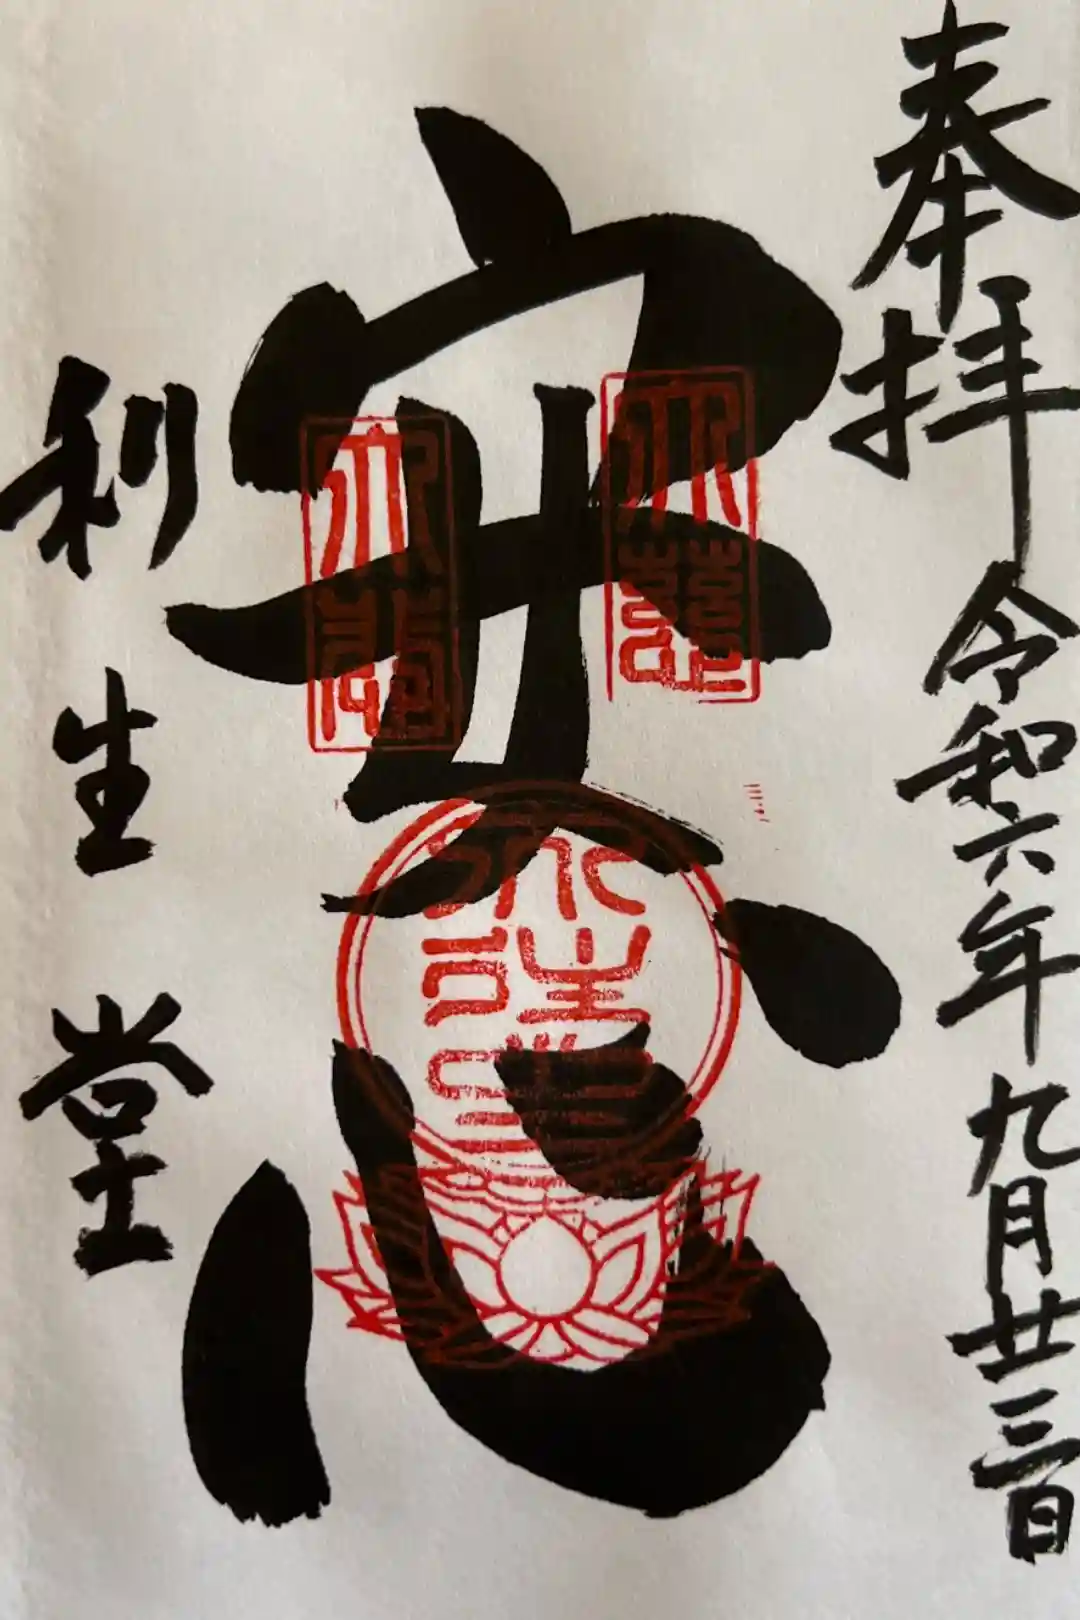 奉拝 令和六年九月廿三日
安心
利生堂